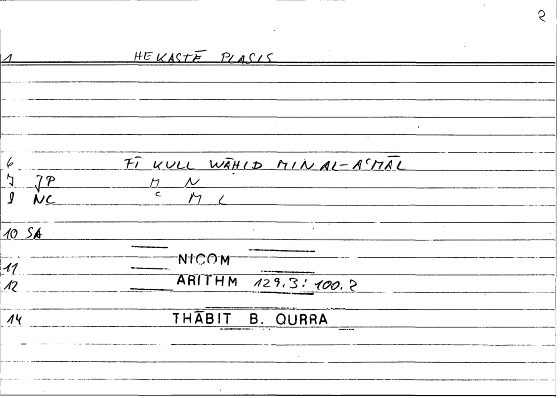 2
1 HEKASTĒ PLASIS
6 FĪ KULL WĀḤID MIN AL-AʿMĀL
7 JP M N
8 NC ʿ M L
10 SA
11 NICOM
12 ARITHM 129.3: 100.2
14 THĀBIT B. QURRA